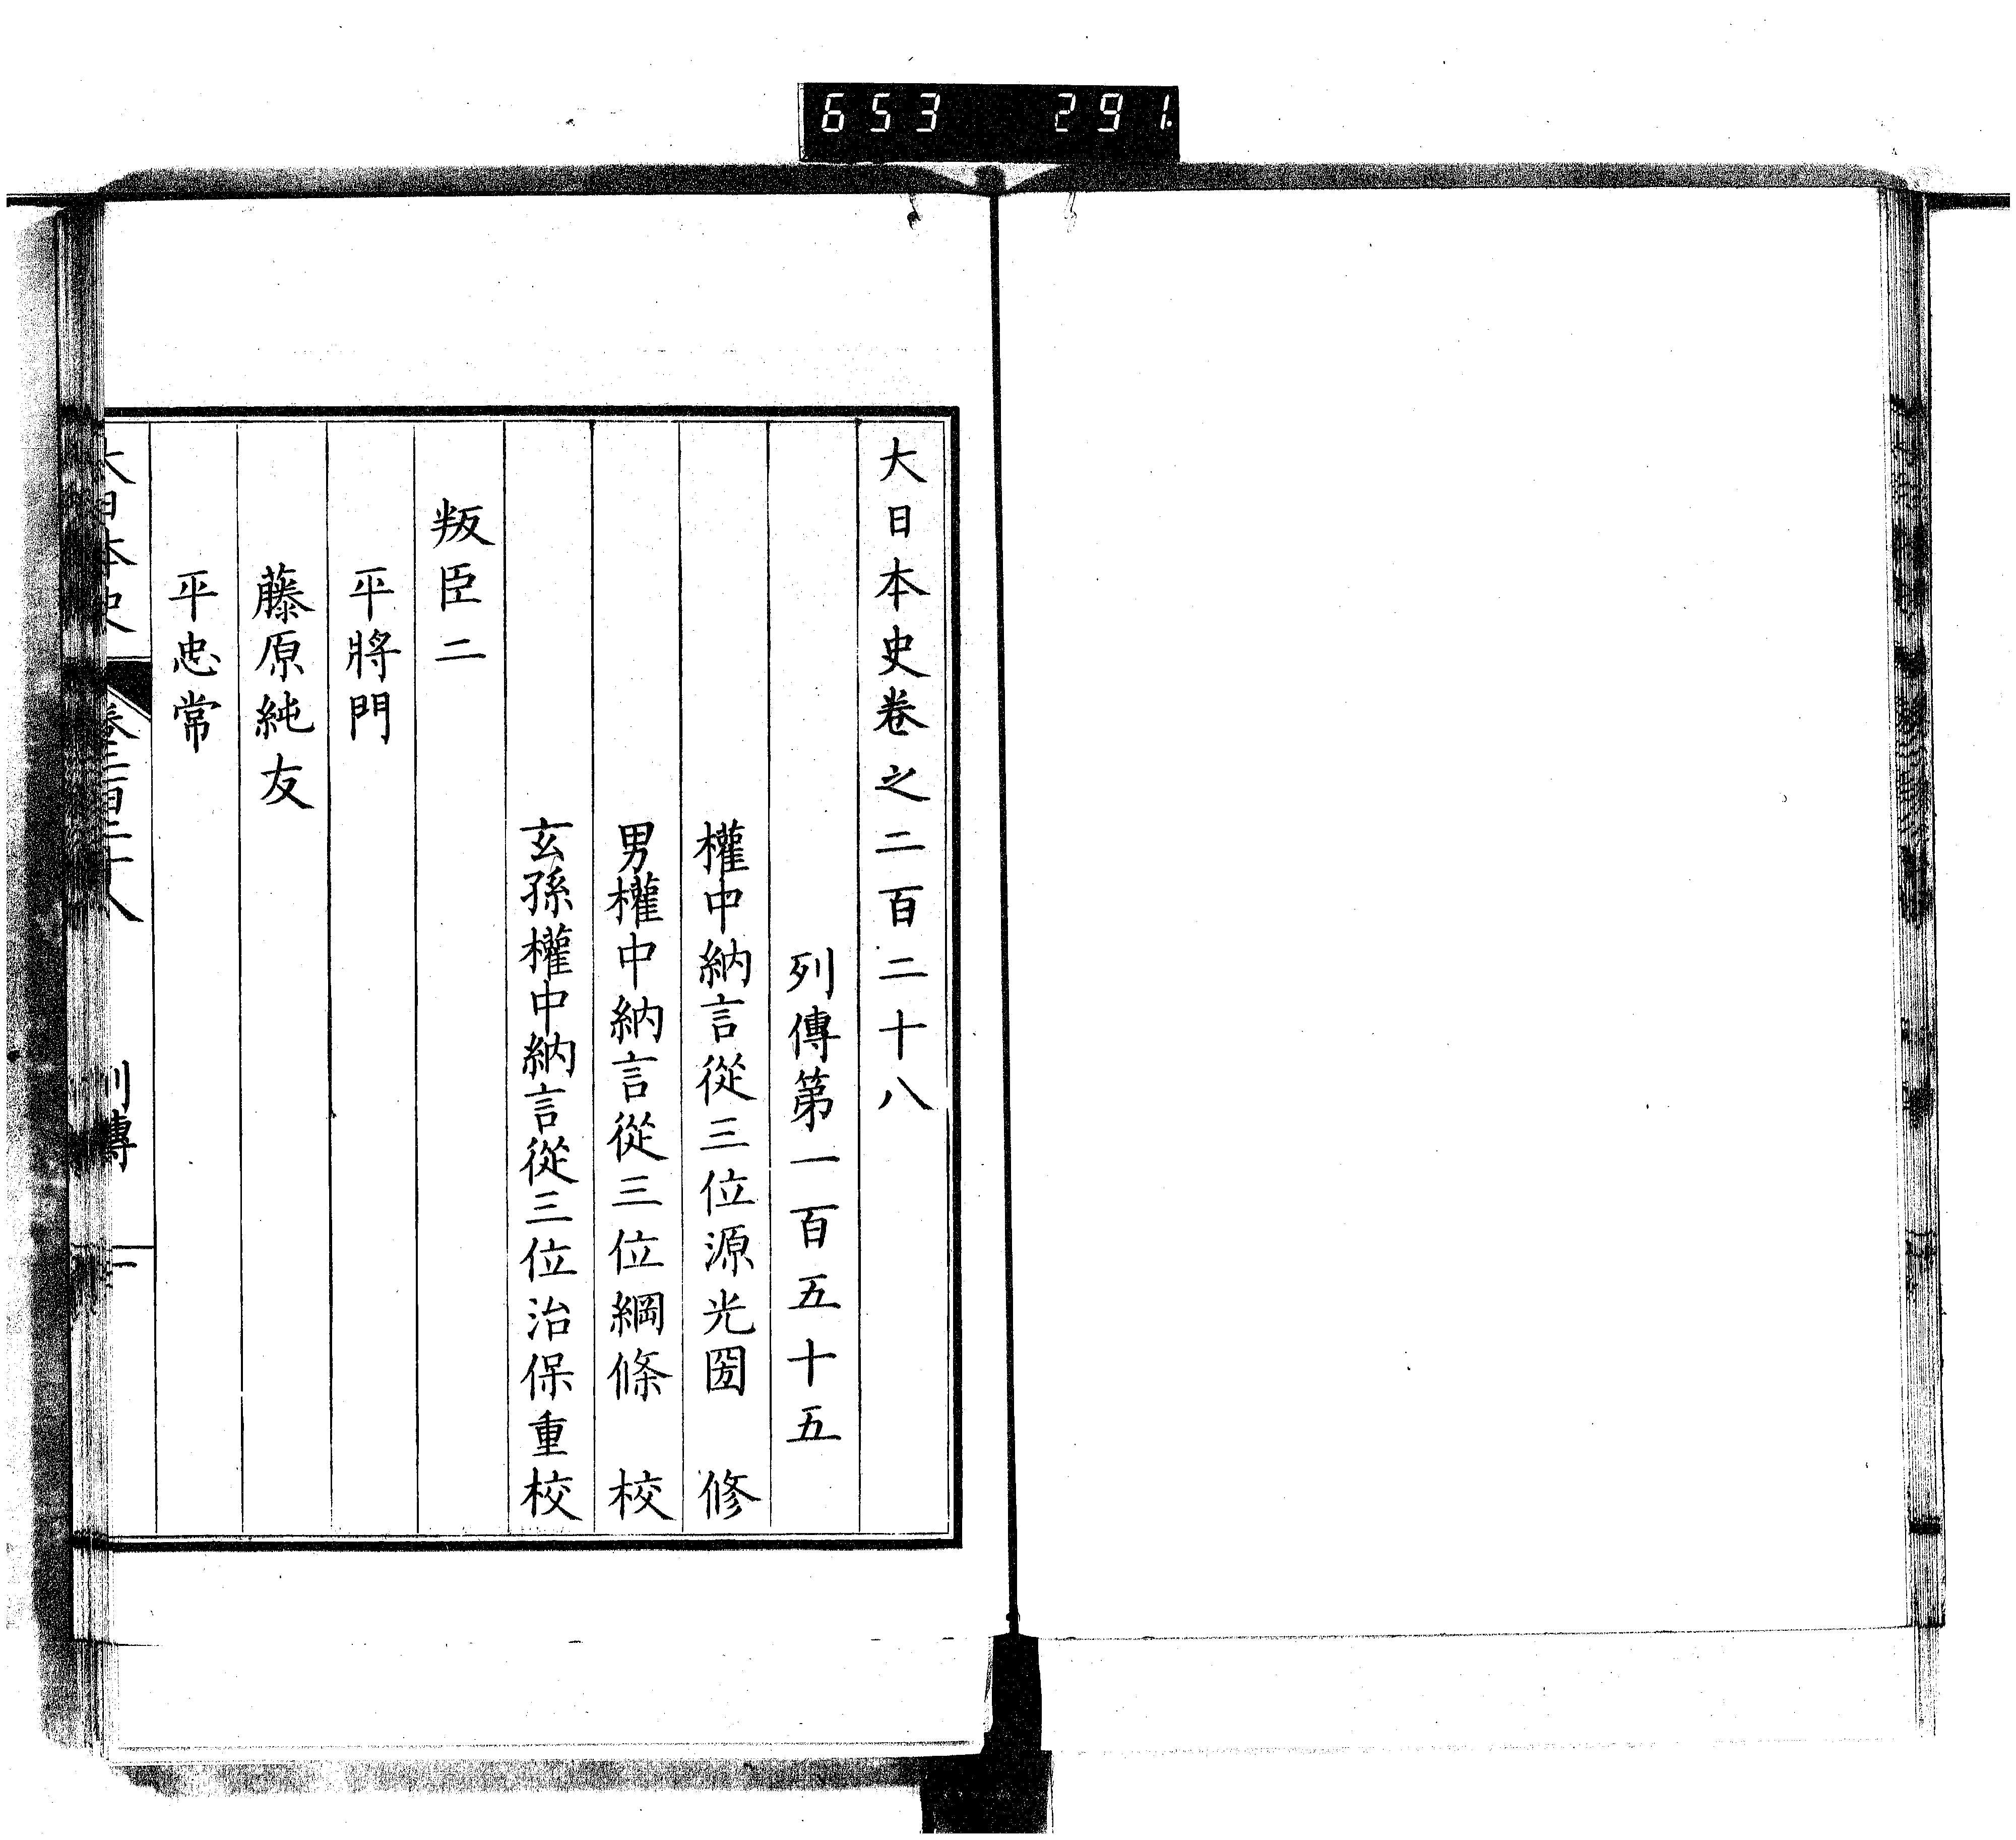 653 291.
大日本史卷之二百二十八
列傳第一百五十五
權中納言從三位源光圀 修
男權中納言從三位綱條 校
玄孫權中納言從三位治保重校
叛臣二
平將門
藤原純友
平忠常
大日本史 卷二百二十八 列傳 一